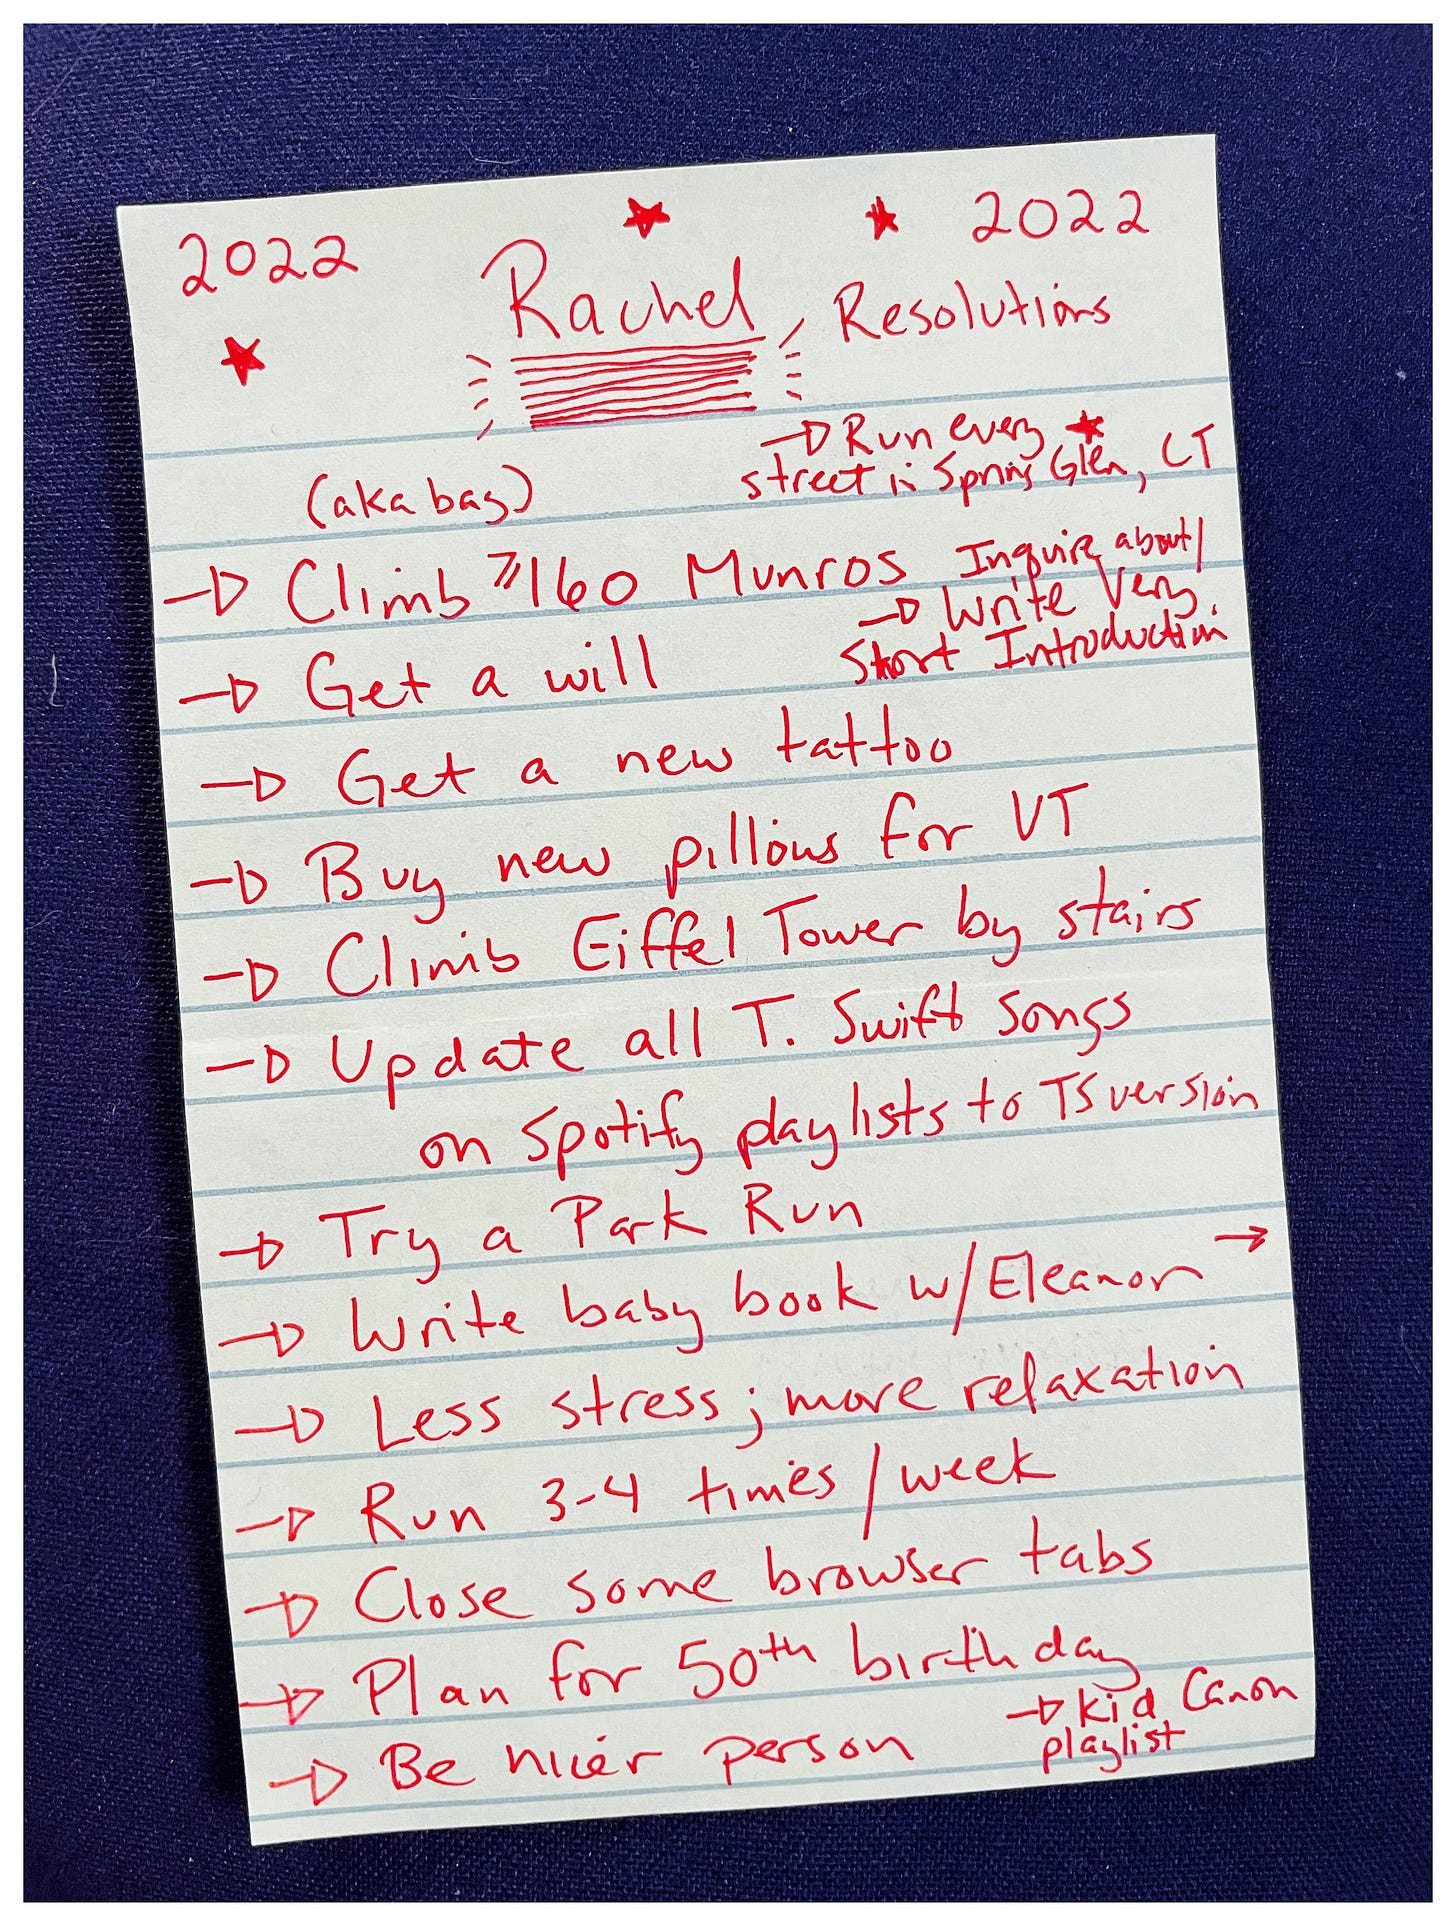 2022 2022
Rachel Resolutions
→ Run every
street in Spring Glen, CT
(aka bag)
→ Climb ≥160 Munros
Inquire about/
→ Write Very
Short Introduction
→ Get a will
→ Get a new tattoo
→ Buy new pillows for VT
→ Climb Eiffel Tower by stairs
→ Update all T. Swift songs
on Spotify playlists to TS version
→ Try a Park Run
→ Write baby book w/Eleanor →
→ Less stress; more relaxation
→ Run 3-4 times/week
→ Close some browser tabs
→ Plan for 50th birthday
→ Be nicer person
→ Kid Canon
playlist